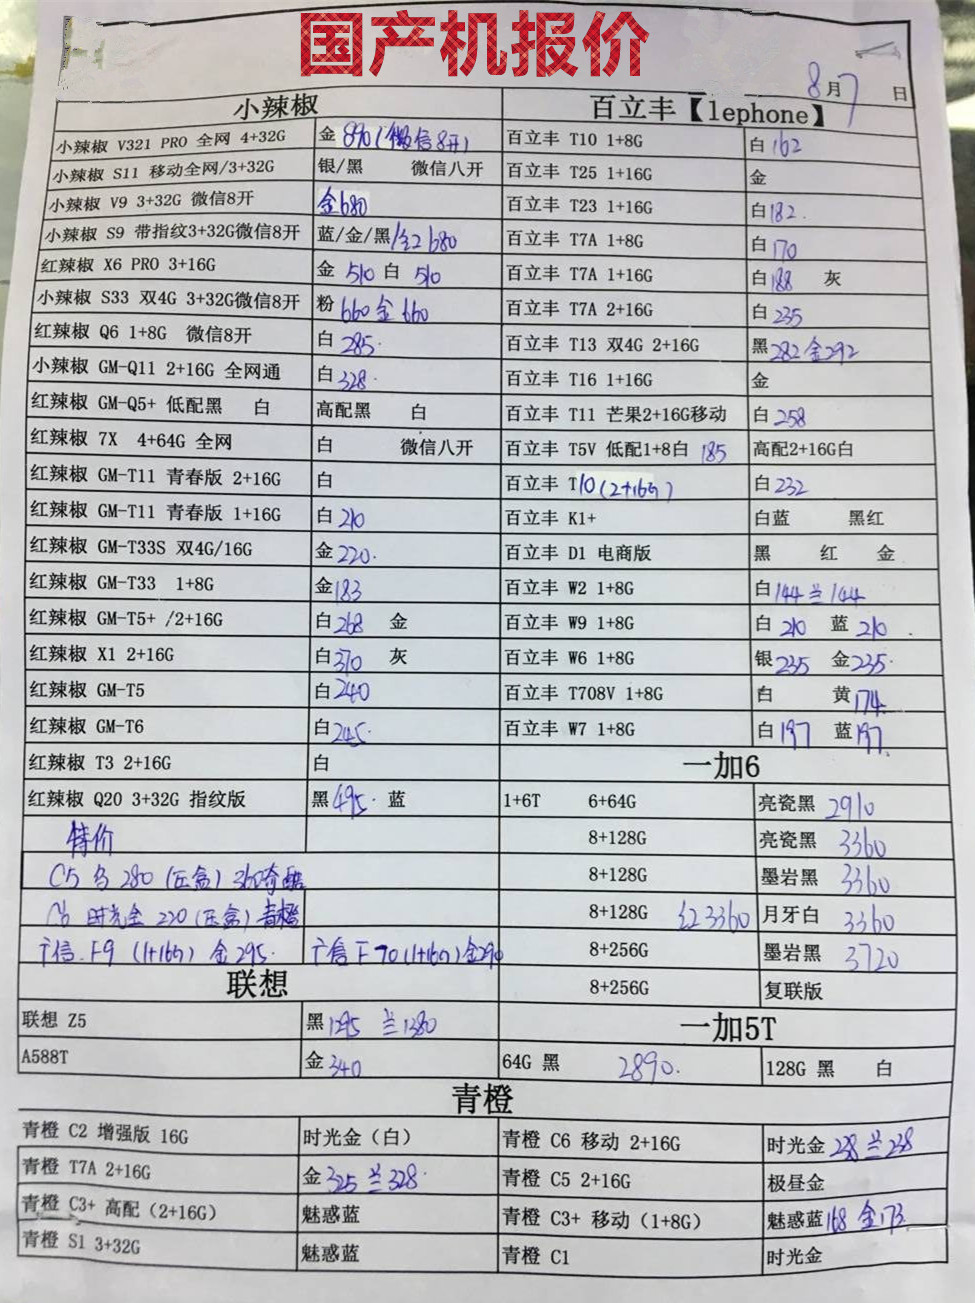 国产机报价
8月7日
小辣椒 百立丰【lephone】
小辣椒 V321 PRO 全网 4+32G 金 890(微信8开) 百立丰 T10 1+8G 白162
小辣椒 S11 移动全网/3+32G 银/黑 微信八开 百立丰 T25 1+16G 金
小辣椒 V9 3+32G 微信8开 金680 百立丰 T23 1+16G 白182.
小辣椒 S9 带指纹3+32G微信8开 蓝/金/黑/红 680 百立丰 T7A 1+8G 白170
红辣椒 X6 PRO 3+16G 金 510 白 510 百立丰 T7A 1+16G 白188 灰
小辣椒 S33 双4G 3+32G微信8开 粉 660 金 660 百立丰 T7A 2+16G 白235
红辣椒 Q6 1+8G 微信8开 白 285. 百立丰 T13 双4G 2+16G 黑282 金292
小辣椒 GM-Q11 2+16G 全网通 白328. 百立丰 T16 1+16G 金
红辣椒 GM-Q5+ 低配黑 白 高配黑 白 百立丰 T11 芒果2+16G移动 白258
红辣椒 7X 4+64G 全网 白 微信八开 百立丰 T5V 低配1+8白 185 高配2+16G白
红辣椒 GM-T11 青春版 2+16G 白 百立丰 T10(2+16G) 白232
红辣椒 GM-T11 青春版 1+16G 白210 百立丰 K1+ 白蓝 黑红
红辣椒 GM-T33S 双4G/16G 金220. 百立丰 D1 电商版 黑 红 金
红辣椒 GM-T33 1+8G 金183 百立丰 W2 1+8G 白144 兰144
红辣椒 GM-T5+ /2+16G 白268 金 百立丰 W9 1+8G 白 210 蓝 210.
红辣椒 X1 2+16G 白370 灰 百立丰 W6 1+8G 银235 金235.
红辣椒 GM-T5 白240 百立丰 T708V 1+8G 白 黄174
红辣椒 GM-T6 白245. 百立丰 W7 1+8G 白197 蓝197.
红辣椒 T3 2+16G 白 一加6
红辣椒 Q20 3+32G 指纹版 黑495. 蓝 1+6T 6+64G 亮瓷黑 2910
特价 8+128G 亮瓷黑 3360
C5 280 (压盒) 360奇酷 8+128G 墨岩黑 3360
C6 时光金 220 (压盒) 青橙 8+128G 红 3360 月牙白 3360
广信. F9 (1+16G) 金295. 广信 F70(1+16G)金290 8+256G 墨岩黑 3720
联想 8+256G 复联版
联想 Z5 黑1295 兰1380 一加5T
A588T 金340 64G 黑 2890. 128G 黑 白
青橙
青橙 C2 增强版 16G 时光金(白) 青橙 C6 移动 2+16G 时光金 238 兰238
青橙 T7A 2+16G 金325 兰328. 青橙 C5 2+16G 极昼金
青橙 C3+ 高配(2+16G) 魅惑蓝 青橙 C3+ 移动(1+8G) 魅惑蓝168 金173.
青橙 S1 3+32G 魅惑蓝 青橙 C1 时光金